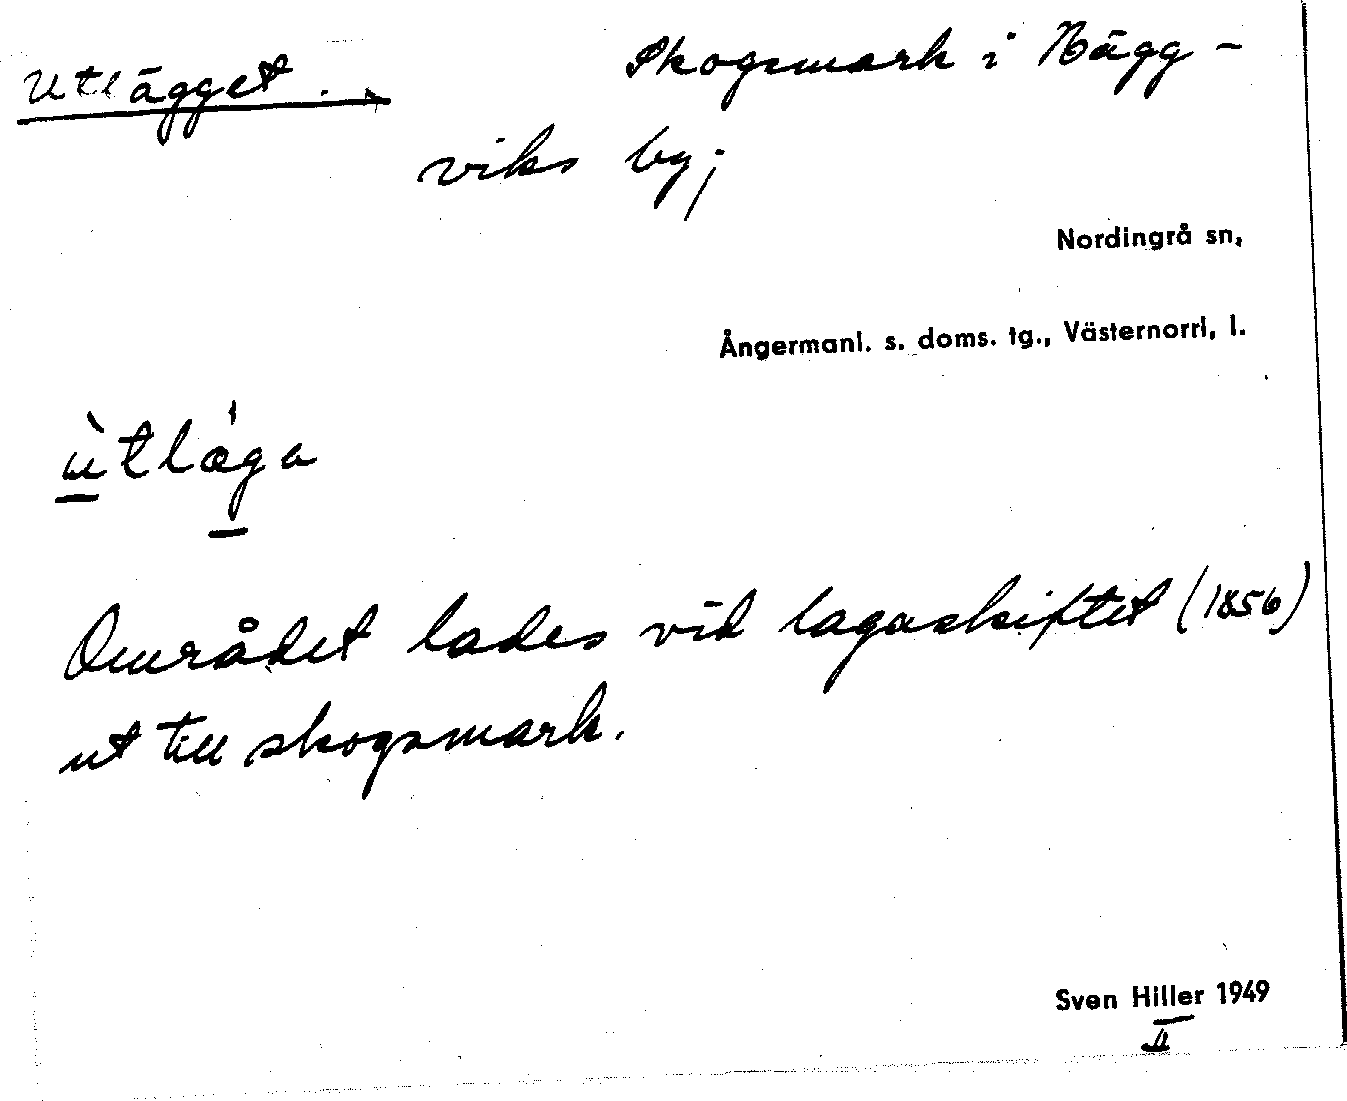 Utlägget. Skogsmark i Hägg-
viks by;
Nordingrå sn,
Ångermanl. s. doms. tg., Västernorrl, l.
ùtlæ̀ga
Området lades vid lagaskiftet (1856)
ut till skogsmark.
Sven Hiller 1949
II